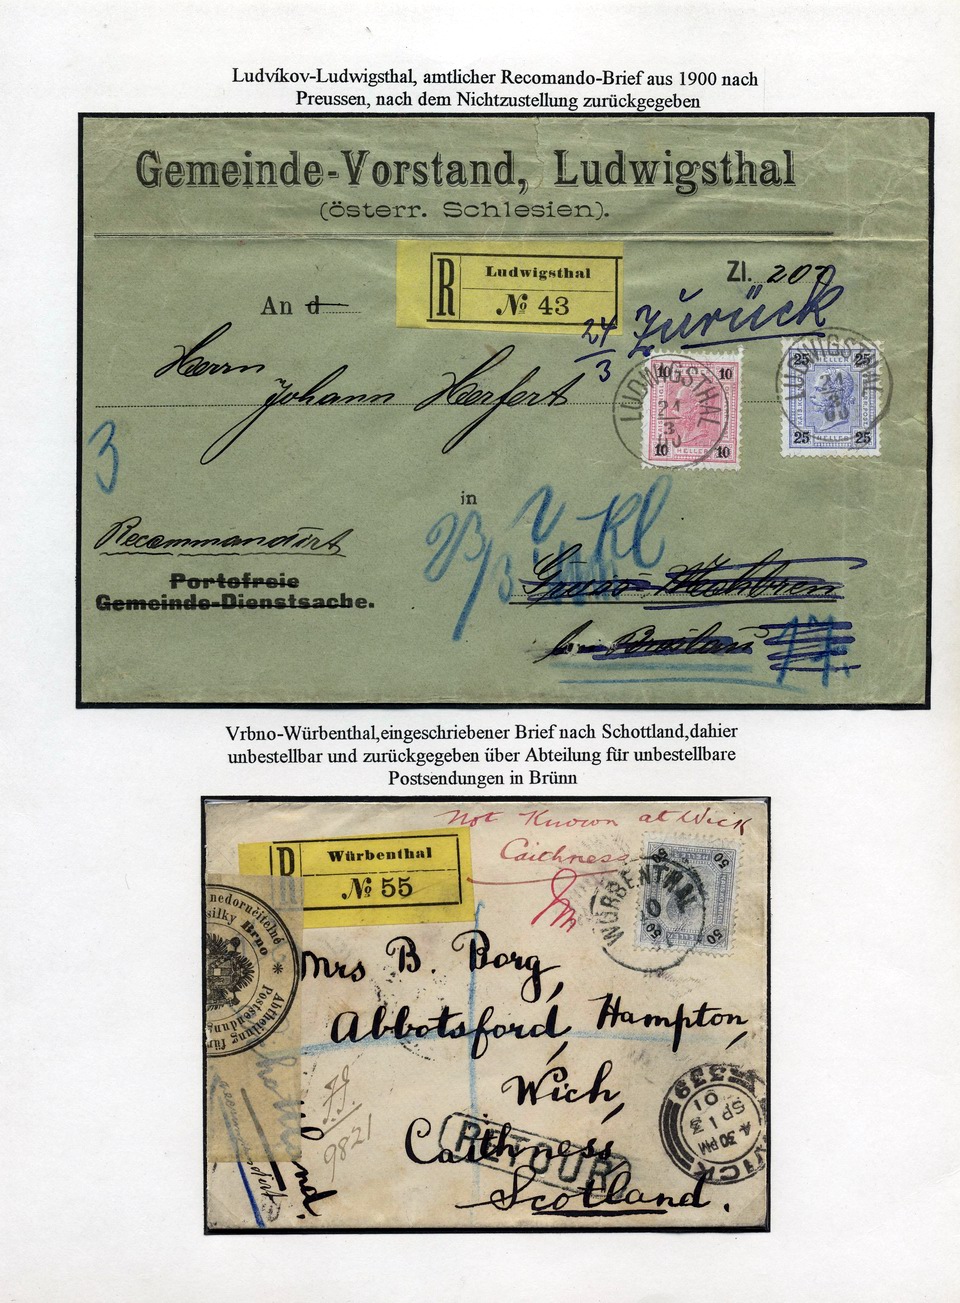 Ludvíkov-Ludwigsthal, amtlicher Recomando-Brief aus 1900 nach
Preussen, nach dem Nichtzustellung zurückgegeben
Gemeinde-Vorstand, Ludwigsthal
(österr. Schlesien).
R
Ludwigsthal
№ 43
Zl. 207
An d
24
3
Zurück
Herrn
Johann Herfert
10 10
10 10
HELLER
LUDWIGSTHAL
24
3
00
25 25
25 25
HELLER
LUDWIGSTHAL
24
3
00
3
in
Recommandirt
Portofreie
Gemeinde-Dienstsache.
bei Breslau
17.
Vrbno-Würbenthal,eingeschriebener Brief nach Schottland,dahier
unbestellbar und zurückgegeben über Abteilung für unbestellbare
Postsendungen in Brünn
Not Known at Wick
Caithness
Würbenthal
№ 55
WÜRBENTHAL
50 50
50 50
nedoručitelné
silky Brno
Abtheilung für
Postsendung
Mrs B. Borg,
Abbotsford, Hampton,
Wich,
Caithness
Scotland.
RETOUR
9821
WICK
4.30 PM
SP 13
01
339